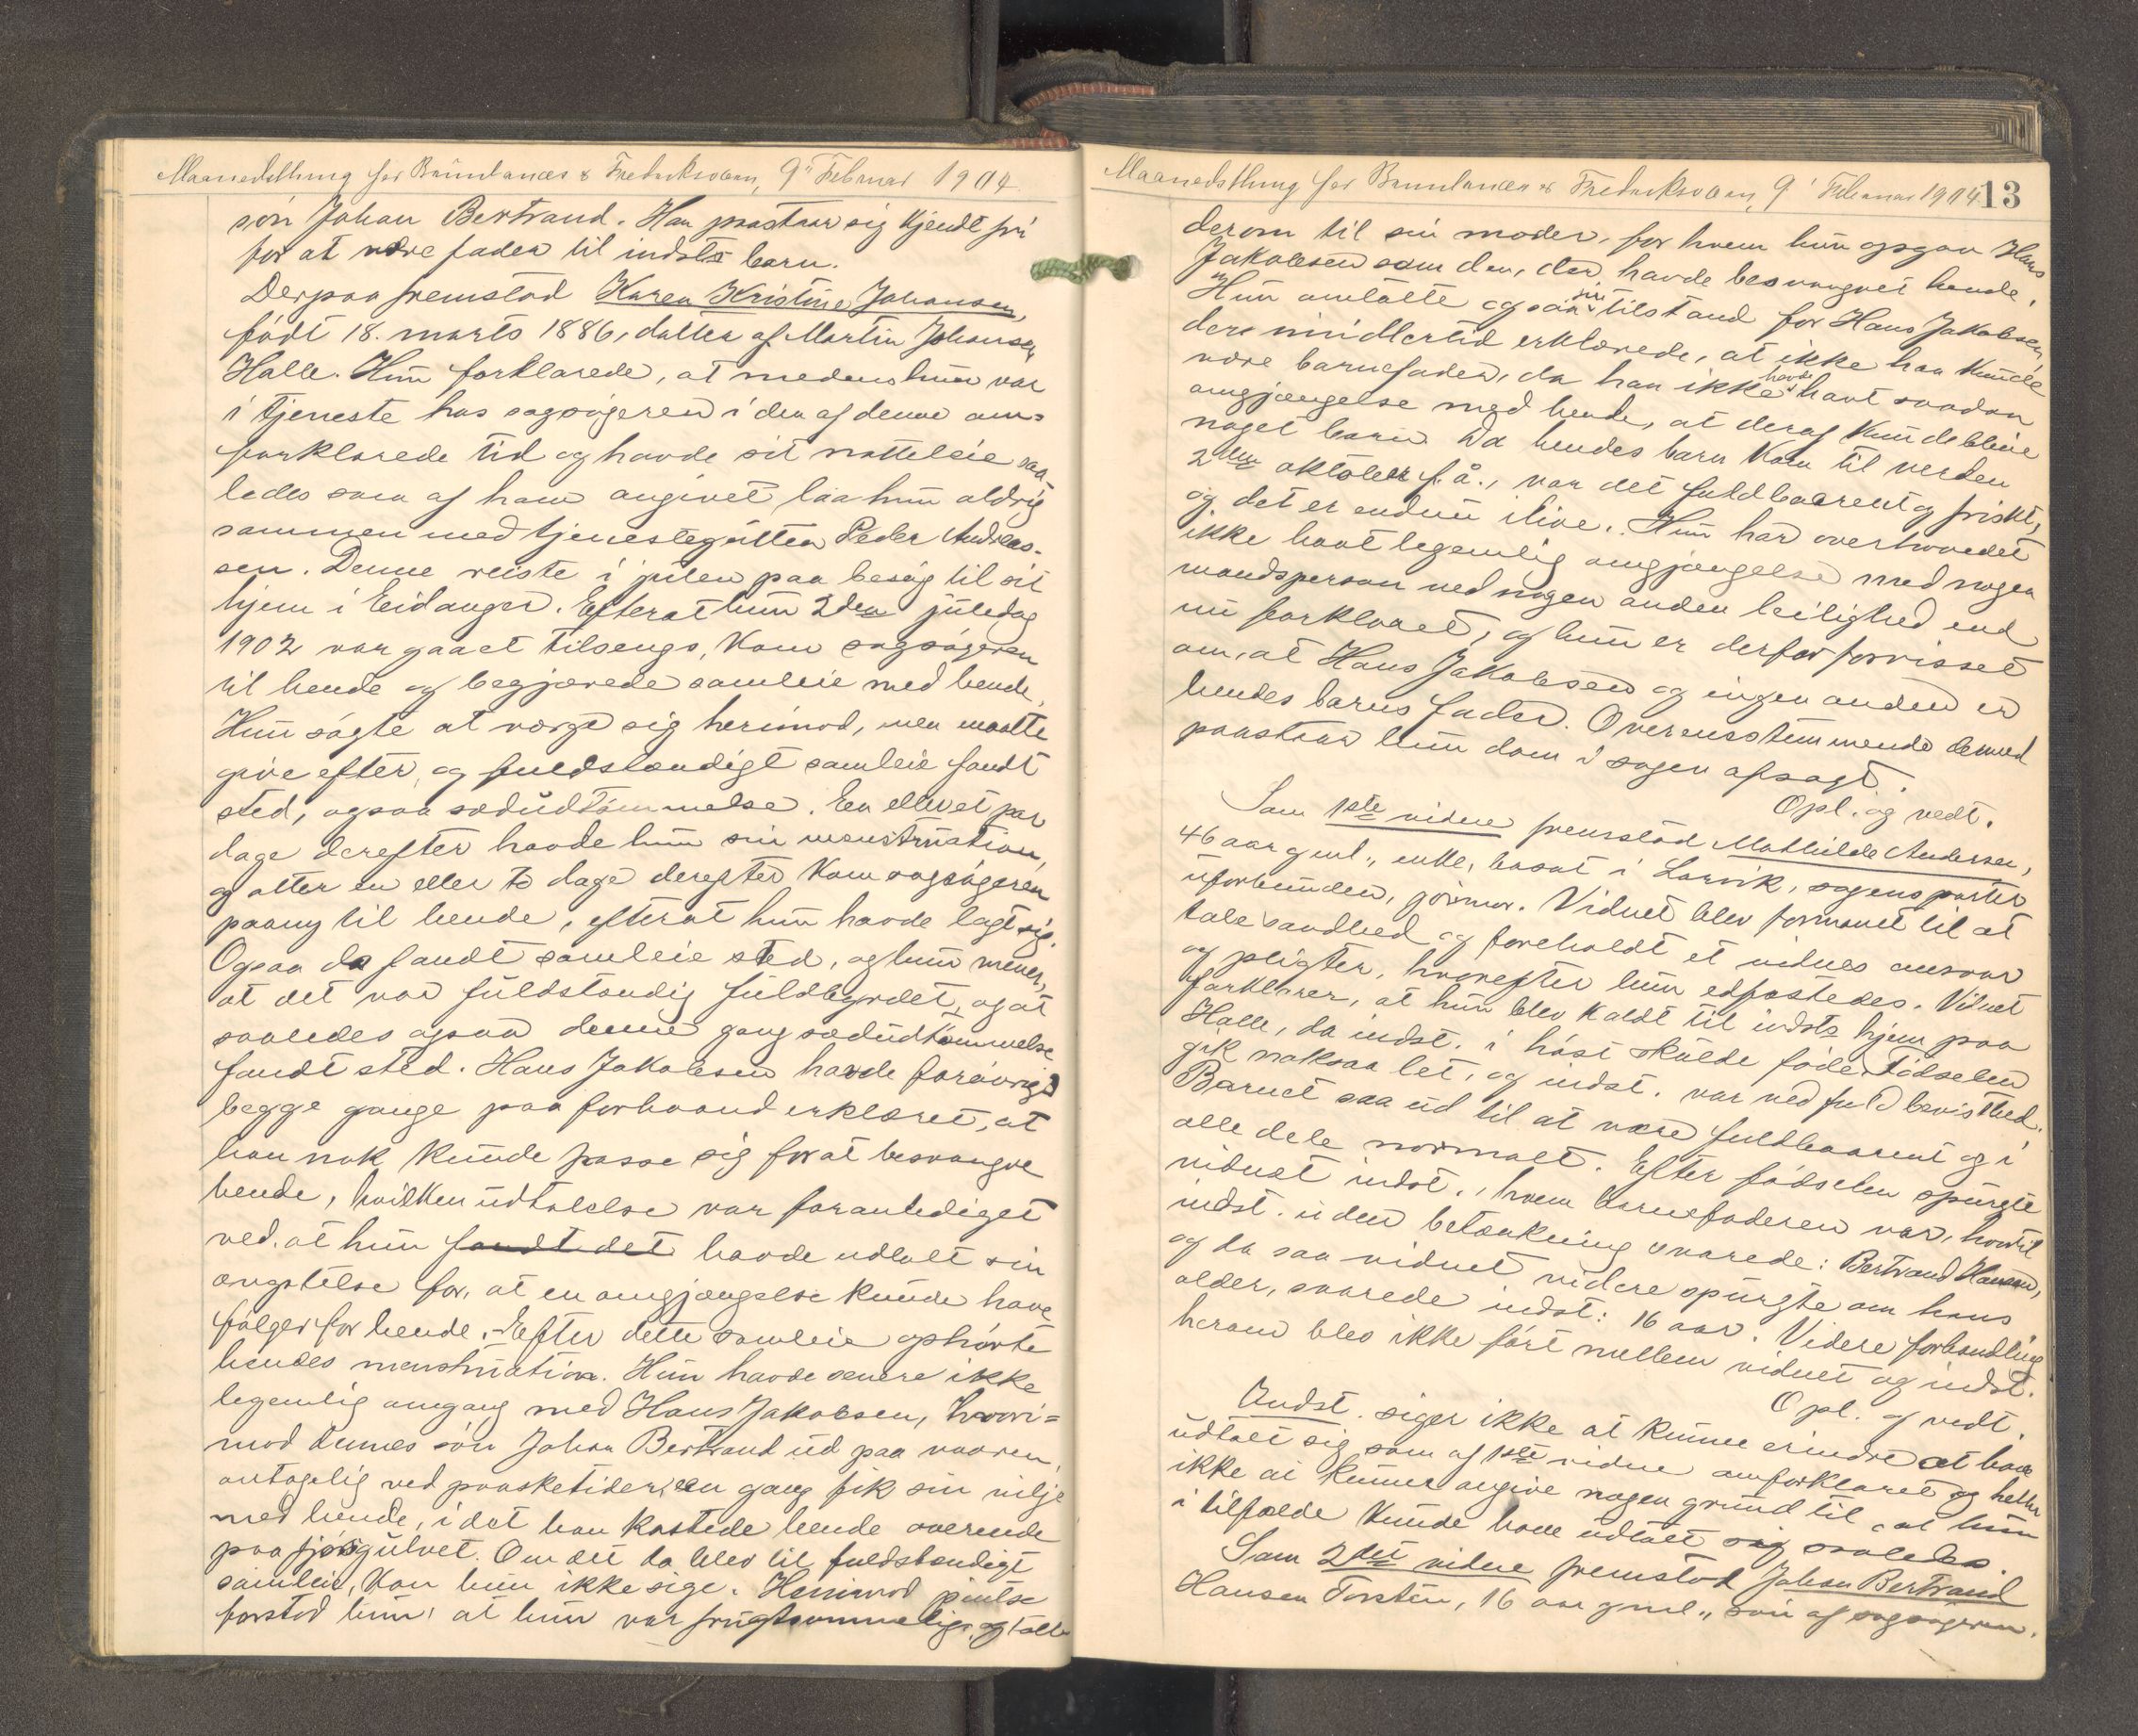 Maanedsthing for Brunlanæs & Fredriksværn, 9' Februar 1904
søn Johan Bertrand. Han paastaar sig kjendt fri
for at være fader til indsts barn.
Derpaa fremstod Karen Kristine Johansen,
født 18. marts 1886, datter af Martin Johansen
Halle. Hun forklarede, at medens hun var
i tjeneste hos sagsøgeren i den af denne om-
forklarede tid og havde sit natteleie saa-
ledes som af ham angivet, laa hun aldrig
sammen med tjenestegutten Peder Andreas-
sen. Denne reiste i julen paa besøg til sit
hjem i Eidanger. Efterat hun 2den juledag
1902 var gaaet tilsengs, kom sagsøgeren
til hende og begjærede samleie med hende.
Hun søgte at værge sig herimod, men maatte
give efter, og fuldstændigt samleie fandt
sted, ogsaa sædudtømmelse. En eller et par
dage derefter havde hun sin menstruation,
og atter en eller to dage derefter kom sagsøgeren
paany til hende, efterat hun havde lagt sig.
Ogsaa da fandt samleie sted, og hun mener,
at det var fuldstændig fuldbyrdet, og at
saaledes ogsaa denne gang sædudtømmelse
fandt sted. Hans Jakobsen havde forøvrigt
begge gange paa forhaand erklæret, at
han nok kunde passe sig for at besvangre
hende, hvilken udtalelse var foranlediget
ved, at hun fandt det havde udtalt sin
ængstelse for, at en omgjængelse kunde have
følger for hende. - Efter dette samleie ophørte
hendes menstruation. Hun havde senere ikke
legemlig omgang med Hans Jakobsen, hvori-
mod dennes søn Johan Bertrand ud paa vaaren,
antagelig ved paasketider, en gang fik sin vilje
med hende, idet han kastede hende overende
paa fjøsgulvet. Om det da blev til fuldstændigt
samleie, kan hun ikke sige. Henimod pintse
forstod hun, at hun var frugtsommelig, og talte
Maanedsthing for Brunlanæs & Fredriksværn, 9' Februar 1904 13
derom til sin moder, for hvem hun opgav Hans
Jakobsen som den, der havde besvangret hende.
Hun omtalte ogsaa sin tilstand for Hans Jakobsen,
der imidlertid erklærede, at ikke han kunde
være barnefader, da han ikke havde havt saadan
omgjængelse med hende, at deraf kunde blive
noget barn. Da hendes barn kom til verden
2den oktober f. å., var det fuldbaarent og friskt,
og det er endnu ilive. Hun har overhovedet
ikke havt legemlig omgjængelse med nogen
mandsperson ved nogen anden leilighed end
nu forklaret, og hun er derfor forvisset
om, at Hans Jakobsen og ingen anden er
hendes barns fader. Overensstemmende dermed
paastaar hun dom i sagen afsagt.
Opl. og vedt.
Som 1ste vidne fremstod Mathilde Andersen,
46 aar gml., enke, bosat i Larvik, sagens parter
uforbunden, jormor. Vidnet blev formanet til at
tale sandhed og foreholdt et vidnes ansvar
og pligter, hvorefter hun edfæstedes. Vidnet
forklarer, at hun blev kaldt til indsts hjem paa
Halle, da indst. i høst skulde føde. Fødselen
gik noksaa let, og indst. var ved fuld bevisthed.
Barnet saa ud til at være fuldbaarent og i
alle dele normalt. Efter fødselen spurgte
vidnet indst., hvem barnefaderen var, hvortil
indst. uden betænkning svarede: Bertrand Hansen,
og da saa vidnet videre spurgte om hans
alder, svarede indst: 16 aar. Videre forhandling
herom blev ikke ført mellem vidnet og indst.
Opl. og vedt.
Indst. siger ikke at kunne erindre at have
udtalt sig som af 1ste vidne omforklaret og heller
ikke at kunne angive nogen grund til, at hun
i tilfælde kunde have udtalt sig saaledes.
Som 2det vidne fremstod Johan Bertrand
Hansen Torsten, 16 aar gml., søn af sagsøgeren.